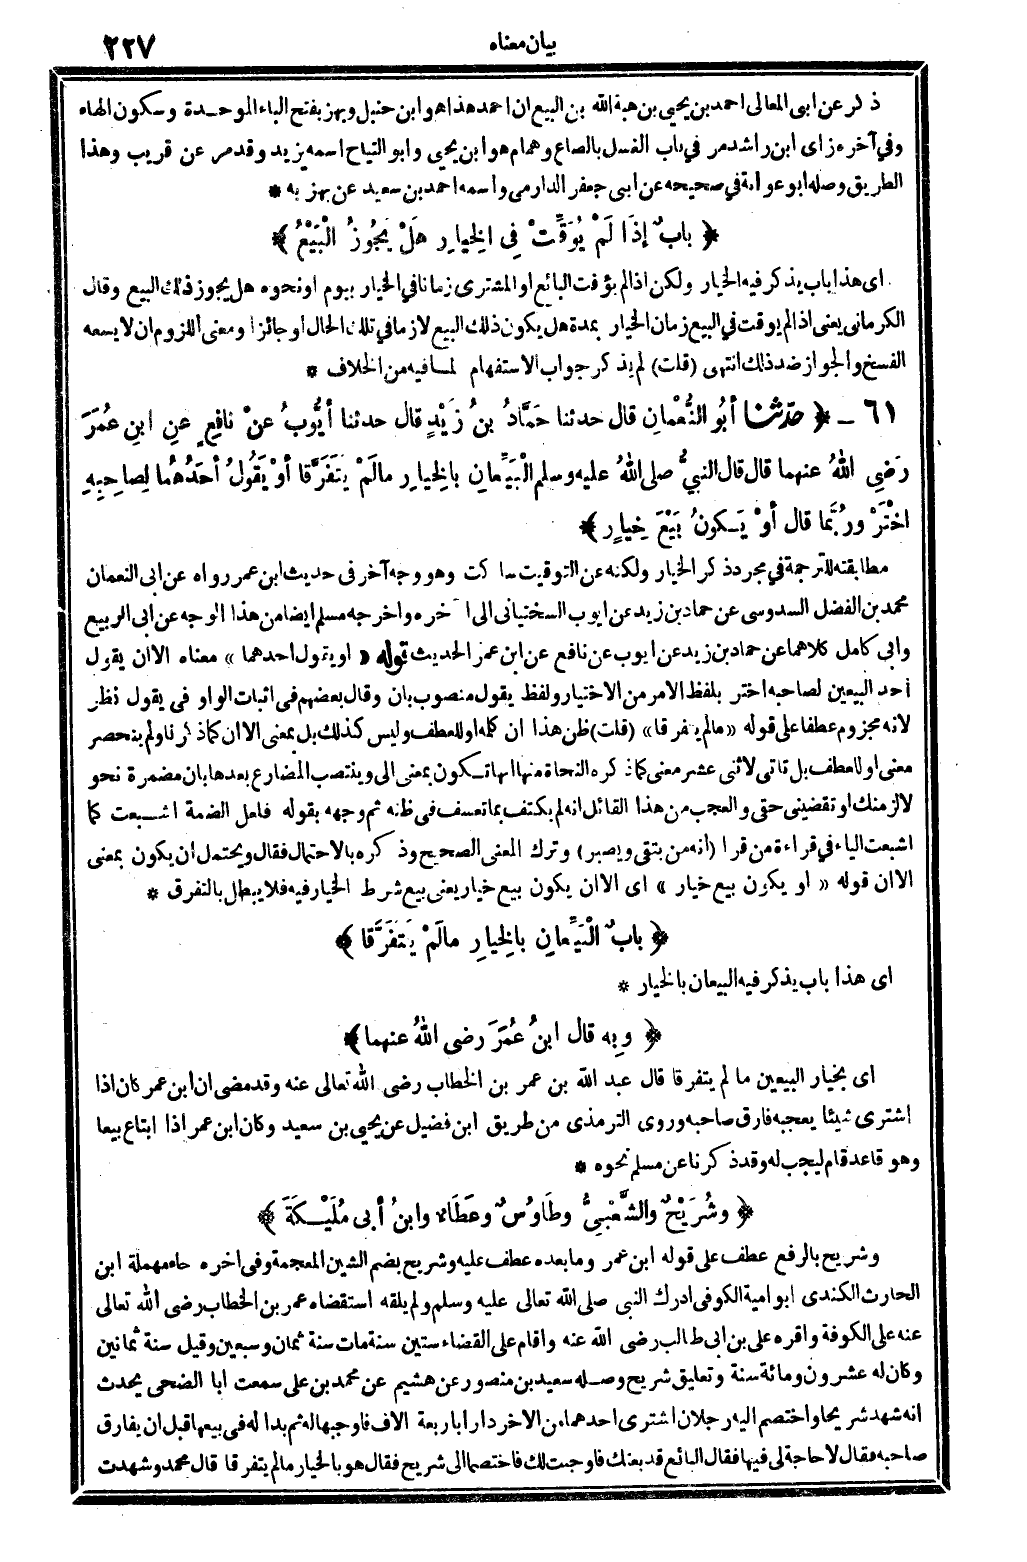 بيان معناه ٢٢٧
ذكر عن ابى المعالى احمد بن يحيى بن هبة الله بن البيع ان احمد هذا هو ابن حنبل وبهز بفتح الباء الموحدة وسكون الهاء
وفي آخره زاى ابن راشد مر في باب الغسل بالصاع وهمام هو ابن يحيى وابو التياح اسمه يزيد وقد مر عن قريب وهذا
الطريق وصله ابو عوانة في صحيحه عن ابى جعفر الدارمى واسمه احمد بن سعيد عن بهز به *
﴿ بابٌ إذَا لَمْ يُوَقِّتْ فِى الخِيارِ هَلْ يَجُوزُ الْبَيْعُ ﴾
اى هذا باب يذكر فيه الخيار ولكن اذا لم يؤقت البائع او المشترى زمانا في الخيار بيوم او نحوه هل يجوز ذلك البيع وقال
الكرمانى يعنى اذا لم يوقت في البيع زمان الخيار بمدة هل يكون ذلك البيع لازما في تلك الحال او جائزا ومعنى اللزوم ان لا يسعه
الفسخ والجواز ضد ذلك انتهى (قلت) لم يذكر جواب الاستفهام لمافيه من الخلاف *
٦١ ــ ﴿ حدّثنا أبُو النُّعْمانِ قال حدثنا حَمَّادُ بنُ زَيْدٍ قال حدثنا أيُّوبُ عنْ نافِعٍ عنِ ابنِ عُمَرَ
رَضى اللهُ عنهما قال قال النبيُّ صلى اللهُ عليه وسلم الْبَيِّعانِ بالخِيارِ مالَمْ يَتَفَرَّقا أوْ يَقُولُ أحَدُهُما لِصاحِبِهِ
اخْتَرْ ورُبَّما قال أوْ يَكونُ بَيْعَ خِيارٍ ﴾
مطابقته للترجمة في مجرد ذكر الخيار ولكنه عن التوقيت ساكت وهو وجه آخر فى حديث ابن عمر رواه عن ابى النعمان
محمد بن الفضل السدوسى عن حماد بن زيد عن ايوب السختيانى الى آخره واخرجه مسلم ايضا من هذا الوجه عن ابى الربيع
وابى كامل كلاهما عن حماد بن زيد عن ايوب عن نافع عن ابن عمر الحديث قوله « او يقول احدهما » معناه الا ان يقول
احد البيعين لصاحبه اختر بلفظ الامر من الاختيار ولفظ يقول منصوب بان وقال بعضهم فى اثبات الواو فى يقول نظر
لانه مجزوم عطفا على قوله « مالم يتفرقا » (قلت) ظن هذا ان كلمة او للعطف وليس كذلك بل بمعنى الا ان كما ذكرنا ولم ينحصر
معنى او للعطف بل تاتى لاثنى عشر معنى كما ذكره النحاة منها انها تكون بمعنى الى وينتصب المضارع بعدها بان مضمرة نحو
لالزمنك او تقضينى حقى والعجب من هذا القائل انه لم يكتف بما تعسف فى ظنه ثم وجهه بقوله فلعل الضمة اشبعت كما
اشبعت الياء في قراءة من قرا (انه من يتقى ويصبر) وترك المعنى الصحيح وذكره بالاحتمال فقال ويحتمل ان يكون بمعنى
الا ان قوله « او يكون بيع خيار » اى الا ان يكون بيع خيار يعنى بيع شرط الخيار فيه فلا يبطل بالتفرق *
﴿ بابٌ الْبَيِّعانِ بالخِيارِ مالَمْ يَتَفَرَّقا ﴾
اى هذا باب يذكر فيه البيعان بالخيار *
﴿ وبِه قال ابنُ عُمَرَ رضى اللهُ عنهما ﴾
اى بخيار البيعين ما لم يتفرقا قال عبد الله بن عمر بن الخطاب رضى الله تعالى عنه وقد مضى ان ابن عمر كان اذا
اشترى شيئا يعجبه فارق صاحبه وروى الترمذى من طريق ابن فضيل عن يحيى بن سعيد وكان ابن عمر اذا ابتاع بيعا
وهو قاعد قام ليجب له وقد ذكرنا عن مسلم نحوه *
﴿ وشُرَيْحٌ والشَّعْبيُّ وطَاوُسٌ وعَطَاءٌ وابنُ أبى مُلَيْكَةَ ﴾
وشريح بالرفع عطف على قوله ابن عمر وما بعده عطف عليه وشريح بضم الشين المعجمة وفى اخره حاء مهملة ابن
الحارث الكندى ابو امية الكوفى ادرك النبى صلى الله تعالى عليه وسلم ولم يلقه استقضاه عمر بن الخطاب رضى الله تعالى
عنه على الكوفة واقره على بن ابى طالب رضى الله عنه واقام على القضاء ستين سنة مات سنة ثمان وسبعين وقيل سنة ثمانين
وكان له عشرون ومائة سنة وتعليق شريح وصله سعيد بن منصور عن هشيم عن محمد بن على سمعت ابا الضحى يحدث
انه شهد شريحا واختصم اليه رجلان اشترى احدهما من الاخر دارا باربعة الاف فاوجبها له ثم بدا له فى بيعها قبل ان يفارق
صاحبه فقال لا حاجة لى فيها فقال البائع قد بعتك فاوجبت لك فاختصما الى شريح فقال هو بالخيار مالم يتفرقا قال محمد وشهدت